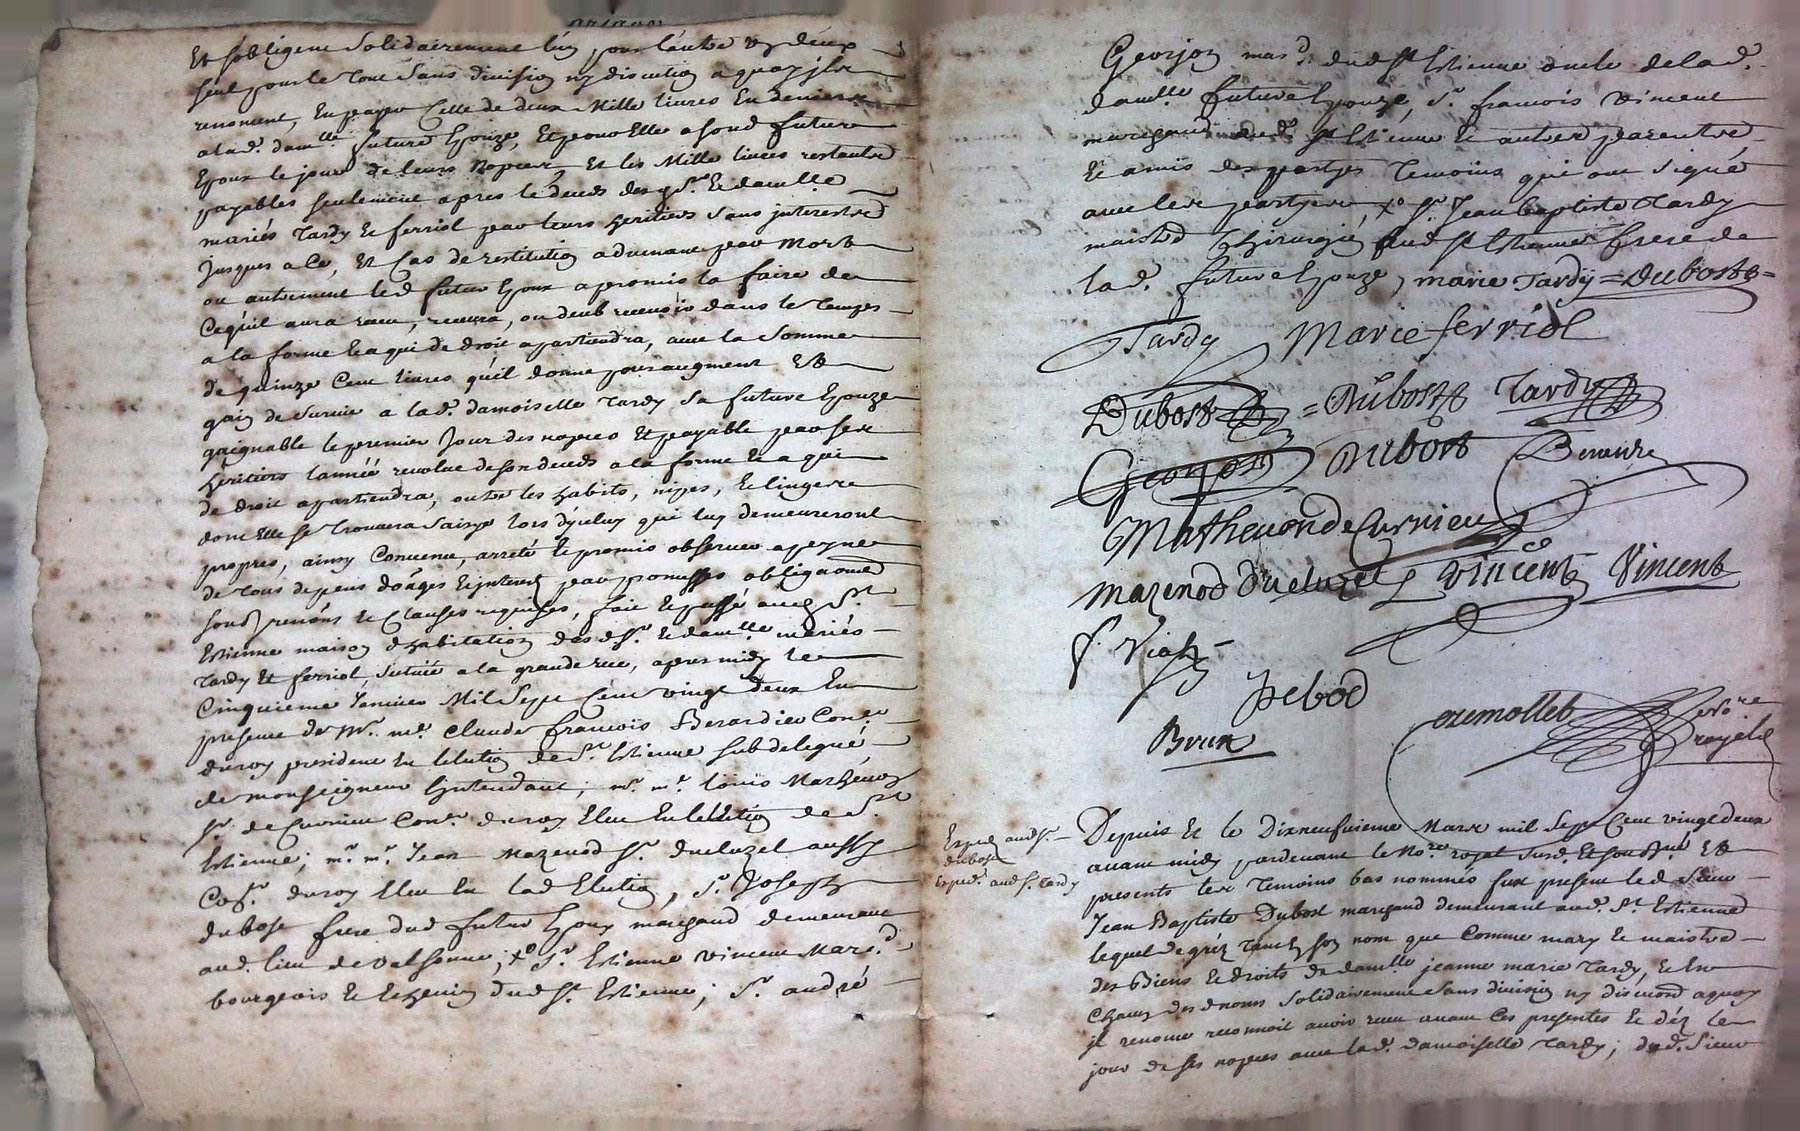 Et s'obligent solidairement l'un pour l'autre un deux
seul pour le tout sans division ny discution a quoy ils
renoncent, En payer celle de deux Mille livres En deniers
a lad. damlle future Epouze, Et pour Elle a sond futur
Epoux le jour de leurs nopces, Et les Mille livres restantes
payables seulement apres le deceds desd Sr. Et damlle
mariés Tardy Et ferriol par leurs heritiers sans interests
jusques a ce, Et Cas de restitution advenant par Mort
ou autrement led futur Epoux a promis la faire de
Ce qu'il aura receu, recevra, ou deub recevoir dans le temps
a la forme Et a qui de droit apartiendra, avec la somme
de quinze Cent livres qu'il donne pour augment Et
gain de survie a lad. damoiselle Tardy sa future Epouze
gaignable le premier Jour des nopces Et payable par ses
heritiers l'année revolue de son deceds a la forme Et a qui
de droit apartiendra, outre les habits, nipes, Et lingerie
dont Elle se trouvera saisye lors d'yceluy qui luy demeureront
propres, ainsy Convenu, arreté Et promis observer a peyne
de tous depens domages Et interests par promesses obligaons
soubmissions Et Clauses requises, fait Et passé aud St.
Estienne maison d'habitation desd Sr. Et damlle mariés
Tardy Et ferriol, scituée a la grande rue, apres midy le
Cinquieme Janvier Mil Sept Cent vingt deux En
presence de Mr. me. Claude francois Berardier Coner.
du roy president En l'election de St. Estienne subdelegué
de monseigneur L'intendant; mr. mr. louis Mathevon
sr. de Curnieu Coner. du roy Eleu En l'election de St.
Estienne; mr. mr. Jean Mazenod sr. ducluzel aussy
Conser. du roy Eleu En lad Election, Sr. Joseph
dubost frere dud futur Epoux marchand demeurant
aud. lieu de valsonne; Sr. Estienne vincent Marchd.
bourgeois Et Echevin dud St. Estienne; Sr. andré
Georjon marchd. dud St Estienne oncle de lad.
damlle future Epouze, Sr. francois vincent
marchand dud St Estienne Et autres parents
Et amis des partyes Temoins qui ont signé
avec les partyes, Sr. Jean baptiste Tardy
maistre Chirurgien dud St Estienne frere de
lad. future Epouze, marie Tardy = Dubost =
Tardy Marie ferriol
Dubost = Dubost Tardy
Georjon Dubost Berardier
Mathevon de Curnieu
Mazenod Ducluzel Vincent Vincent
f. Viall
Pebod
Brun
notre
royal
Exped. aud Sr.
dubost
Exped. aud Sr. Tardy
Depuis Et le Dixneufvieme Mars mil Sept Cent vingt deux
avant midy pardevant le Nore. royal susd. Et soubsné. Et
presents les Temoins bas nommés fut present led Sieur
Jean Baptiste Dubost marchand demeurant aud. St. Estienne
lequel de gré tant En son nom que Comme mary Et maistre
des Biens Et droits de damlle jeanne marie Tardy, Et En
chacun desd noms solidairement sans division ny discution a quoy
il renonce reconnoit avoir receu avant Ces presentes Et dez le
jour de ses nopces avec lad. damoiselle Tardy; dud. Sieur